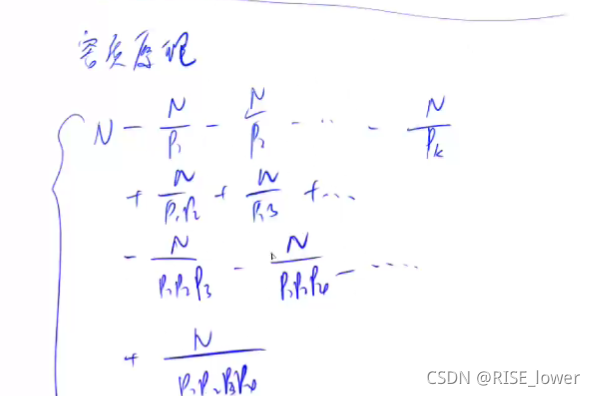 容斥原理
N - N/P₁ - N/P₂ - ... - N/Pₖ
+ N/P₁P₂ + N/P₁P₃ + ...
- N/P₁P₂P₃ - N/P₁P₂P₄ - ....
+ N/P₁P₂P₃P₄
CSDN @RISE_lower